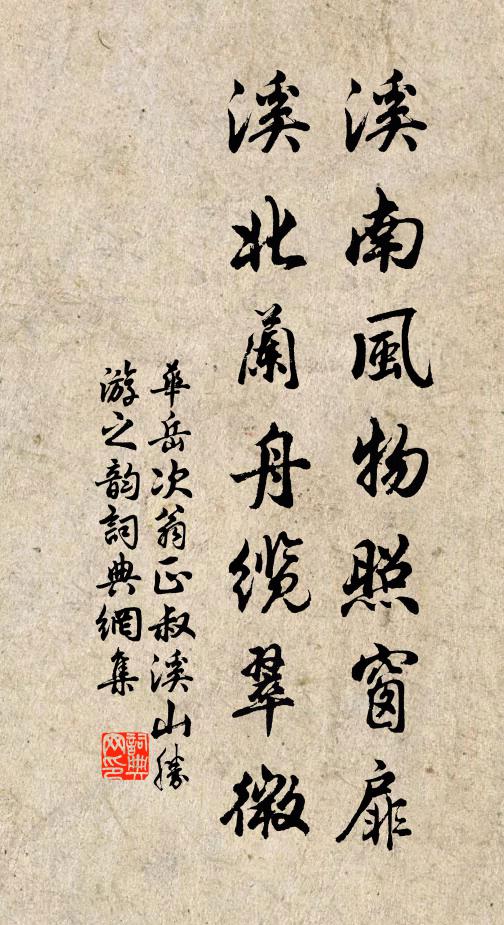 溪南風物照窗扉
溪北蘭舟纜翠微
華岳次翁正叔溪山勝
游之韵詞典網集
詞典網印